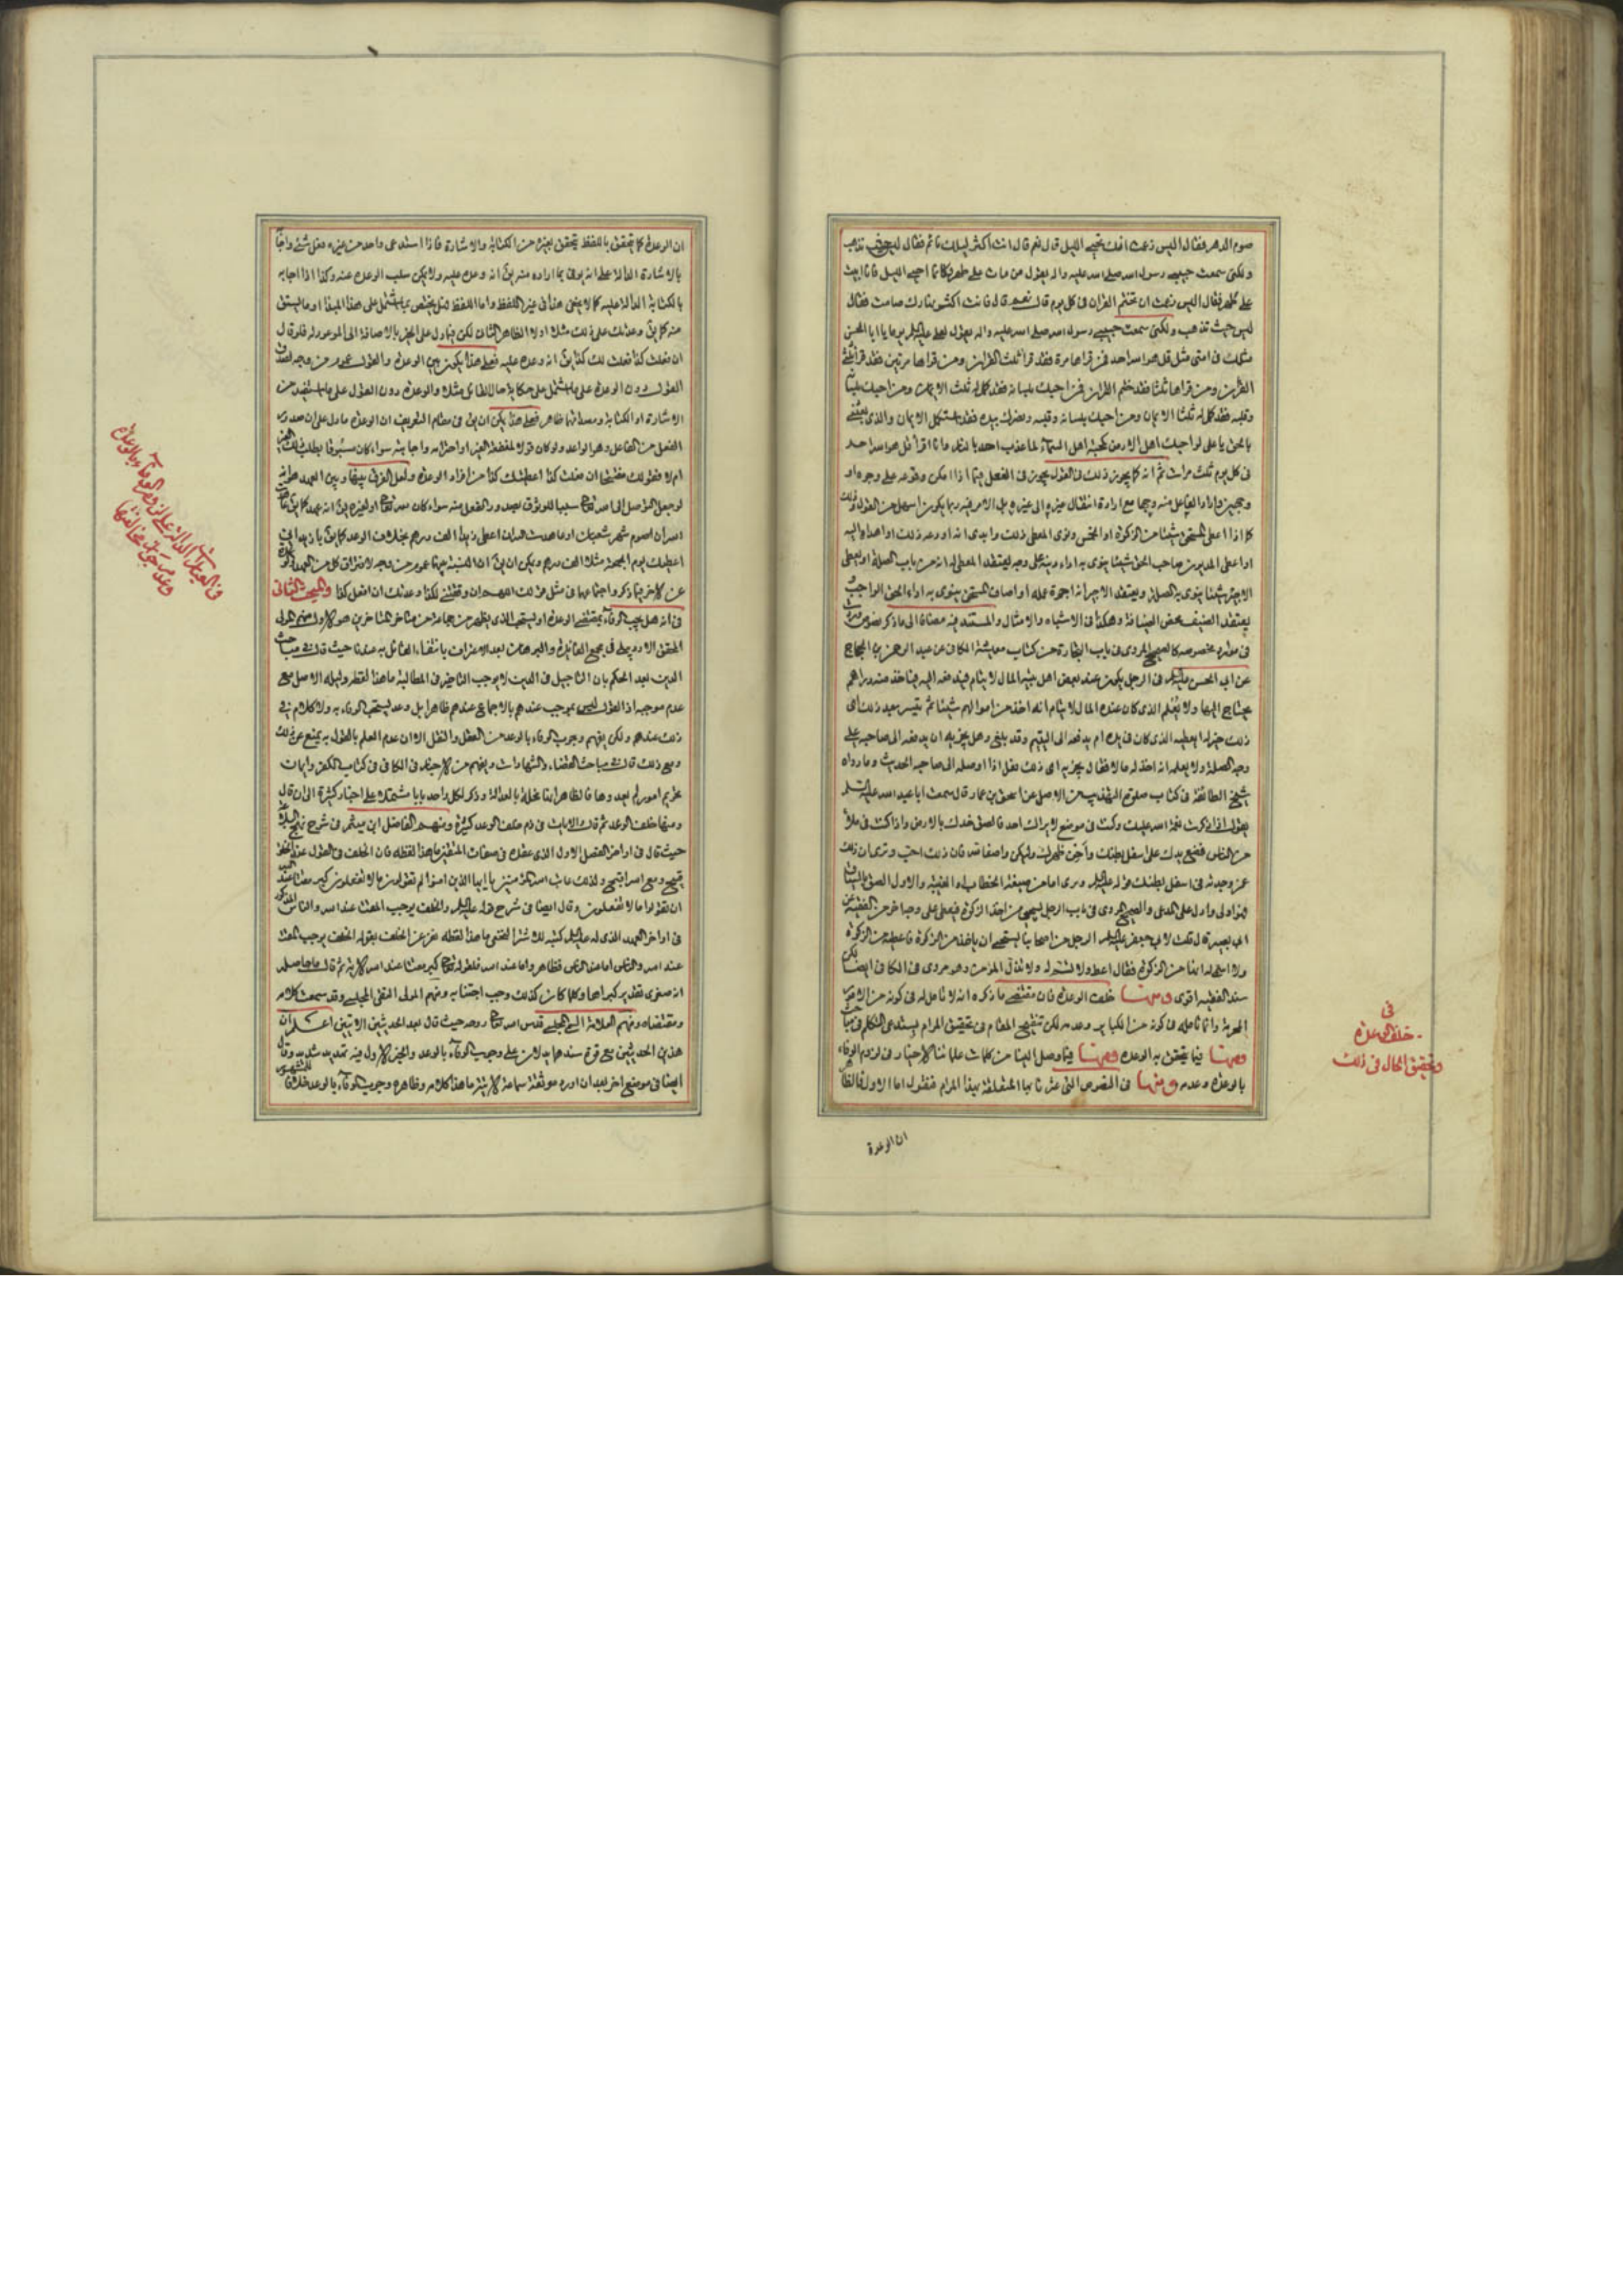 صوم الدهر فقال اليس زعمت انك تحيى الليل قال نعم قال انت اكثر ليلك نائم فقال ليس حيث تذهب
ولكنى سمعت حبيبى رسول الله صلى الله عليه واله يقول من بات على طهر فكانما احيى الليل فانا ابيت
على طهر فقال اليس زعمت ان تختم القران فى كل يوم قال نعم قال فانت اكثر نهارك صامت فقال
ليس حيث تذهب ولكنى سمعت حبيبى رسول الله صلى الله عليه واله يقول لعلى عليه السلام يا ابا الحسن
مثلك فى امتى مثل قل هو الله احد فمن قراها مرة فقد قرأ ثلث القران ومن قراها مرتين فقد قرأ ثلثى
القران ومن قراها ثلثا فقد ختم القران فمن احبك بلسانه فقد كمل له ثلث الايمان ومن احبك بلسانه
وقلبه فقد كمل له ثلثا الايمان ومن احبك بلسانه وقلبه ونصرك بيده فقد استكمل الايمان والذى بعثنى
بالحق يا على لو احبك اهل الارض كمحبة اهل السماء لما عذب احد بالنار وانا اقرأ قل هو الله احد
فى كل يوم ثلث مرات ثم انه كما يجوز ذلك فى القول يجوز فى الفعل فيما اذا امكن وقوعه على وجوه او
كما اذا اعطى المستحق شيئا من الزكوة او الخمس ونوى المعطى ذلك
او اعطى المديون صاحب الحق شيئا ينوى به اداء دينه على وجه يعتقد المعطى له انه من باب الصلة او يعطى
الاجير شيئا ينوى به الصلة ويعتقد الاجير انه اجرة عمله او اضاف المستحق ينوى به اداء الحق الواجب
يعتقد الضيف محض الضيافة وهكذا فى الاشباه والامثال والمستند فيه مضافا الى ما ذكر نصوص
فى موارد مخصوصة كالصحيح المروى فى باب التجارة من كتاب معايش الكافى عن عبد الرحمن بن الحجاج
عن ابى الحسن عليه السلام فى الرجل يكون عند بعض اهل بيته المال لايتام فيدفعه اليه فياخذ منه دراهم
يحتاج اليها ولا يعلم الذى كان عنده المال للايتام انه اخذ من اموالهم شيئا ثم تيسر بعد ذلك اى
ذلك خير له ايعطيه الذى كان فى يده ام يدفعه الى اليتيم وقد بلغ وهل يجزيه ان يدفعه الى صاحبه على
وجه الصلة ولا يعلمه انه اخذ له مالا فقال يجزيه اى ذلك فعل اذا اوصله الى صاحبه الحديث وما رواه
شيخ الطائفة فى كتاب صلوة التهذيب فى الاصل عن اسحق بن عمار قال سمعت ابا عبد الله عليه السلام
يقول اذا ذكرت نعمة الله عليك وكنت فى موضع لا يراك احد فالصق خدك بالارض واذا كنت فى ملأ
من الناس فضع يدك على اسفل بطنك واحن ظهرك وليكن تواضعا لله فان ذلك احب وترى ان ذلك
غمز وجدته فى اسفل بطنك
والصحيح المروى فى باب الرجل يستحيى من اخذ الزكوة فيعطى على وجه اخر من الفقيه عن
ابى بصير قال قلت لابى جعفر عليه السلام الرجل من اصحابنا يستحيى ان ياخذ من الزكوة فاعطيه من الزكوة
ولا اسمى له انها من الزكوة فقال اعطه ولا تسم له ولا تذل المؤمن وهو مروى فى الكافى ايضا لكن
سند الفقيه اقوى ومنها خلف الوعدة فان مقتضى ما ذكره انه لا تامل له فى كونه من الامور
المحرمة وانما تامله فى كونه من الكباير وعدمه لكن تنقيح المقام فى تحقيق المرام يستدعى التكلم فى مباحث
منها فيما يتحقق به الوعدة ومنها فيما وصل الينا من كلمات علمائنا الاخيار فى لزوم الوفاء
بالوعدة وعدمه ومنها فى النصوص التى عثرنا بها المتعلقة بهذا المرام فنقول اما الاول فالظاهر
ان الوعدة
فى
خلف الوعدة
وتحقيق الحال فى ذلك
ان الوعدة كما يتحقق باللفظ يتحقق بغيره من الكتابة والاشارة فاذا استدعى واحد من غيره فعل شئ واجابه
بالاشارة الدالة على انه يوفى بما اراده منه يق انه وعده عليه ولا يمكن سلب الوعدة عنه وكذا اذا اجابه
بالكتابة الدالة عليه كما لا يخفى هذا فى غير اللفظ واما اللفظ فهل يختص بما اشتمل على هذا المبدأ او ما يشتق
منه كما يق وعدتك على ذلك مثلا او لا الظاهر الثانى لكن فيما دل على الخبر بالاضافة الى الموعود له فلو قال
ان فعلت كذا فعلت لك كذا يق انه وعده عليه فعلى هذا يكون بين الوعدة والقول عموم من وجه لصدق
القول دون الوعدة على ما اشتمل على حكاية حال القائل مثلا والوعدة دون القول على ما استفيد من
الاشارة او الكتابة ومصداقهما ظاهر فعلى هذا يمكن ان يق فى مقام التعريف ان الوعدة ما دل على ان صدور
الفعل من الفاعل وهو الواعد ولو كان قولا لمنفعة الغير او احترامه واجابته سواء كان مسبوقا بطلب ذلك الغير
ام لا فقولك مفتتحا ان فعلت كذا اعطيتك كذا من افراد الوعدة ولعل الفرق بينها وبين العهد هو انه
لو جعل التوصل الى الله تعالى سببا للوثوق بصدور الفعل منه سواء كان لله تعالى او لغيره يق انه عهد كما يق عاهدت
الله ان اصوم شهر شعبان او عاهدت الله ان اعطى زيدا الف درهم بخلاف الوعد كما يق يا زيد انى
اعطيك يوم الجمعة مثلا الف درهم ويمكن ان يق ان النسبة بينهما عموم من وجه لافتراق كل من العهد والوعدة
عن الاخر فيما ذكر واجتماعهما فى مثل قولك اللهم ان وفقتنى لكذا وعدتك ان افعل كذا والمبحث الثانى
فى انه هل يجب الوفاء بمقتضى الوعدة او يستحب الذى يظهر من جماعة من متاخرى المتاخرين هو الاول منهم المولى
المحقق الاردبيلى فى مجمع الفائدة والبرهان بعد الاعتراف بانتفاء القائل به عندنا حيث قال فى مباحث
الدين بعد الحكم بان التاجيل فى الدين لا يوجب التاخير فى المطالبة ما هذا لفظه ودليله الاصل مع
عدم موجبه اذ القول ليس بموجب عندهم بالاجماع عندهم ظاهرا بل وعد يستحب الوفاء به ولا كلام فى
ذلك عندهم ولكن يفهم وجوب الوفاء بالوعد من العقل والنقل الا ان عدم العلم بالقول به يمنع عن ذلك
ومع ذلك قال فى مباحث القضاء والشهادات ويفهم من الاخبار فى الكافى فى كتاب الكفر والايمان
تحريم امور لم يعدوها فالظاهر انها تخل بالعدالة وذكر لكل واحد بابا مشتملا على اخبار كثيرة الى ان قال
ومنها خلف الوعد ثم قال والايات فى ذم خلف الوعد كثيرة ومنهم الفاضل ابن ميثم فى شرح نهج البلاغة
حيث قال فى اواخر الفصل الاول الذى عقده فى صفات المتقين ما هذا لفظه فان الخلف فى القول عند الخلق
قبيح ومع الله اقبح ولذلك عاتب الله المؤمنين يا ايها الذين امنوا لم تقولون ما لا تفعلون كبر مقتا عند الله
ان تقولوا ما لا تفعلون وقال ايضا فى شرح قوله عليه السلام والخلف يوجب المقت عند الله والناس المذكور
فى اواخر العهد الذى له عليه السلام كتبه للاشتر النخعى ما هذا لفظه نفر عن الخلف بقوله الخلف يوجب المقت
عند الله والناس اما عند الناس فظاهر واما عند الله فلقوله تعالى كبر مقتا عند الله الاية ثم قال ما حاصله
انه صغرى تقدير كبراها وكلما كان كذلك وجب اجتنابه ومنهم المولى التقى المجلسى وقد سمعت كلامه
ومقتضاه ومنهم العلامة السمى المجلسى قدس الله تعالى روحه حيث قال بعد الحديثين الاتيين اعلم ان
هذين الحديثين مع قوة سندهما يدلان على وجوب الوفاء بالوعد والخبر الاول فيه تهديد شديد وقال
ايضا فى موضع اخر بعد ان اورد موثقة سماعة الاتية ما هذا كلامه وظاهره وجوب الوفاء بالوعد خلافا للمشهور
فى العبارات الدالة على لزوم الوفاء بالوعدة